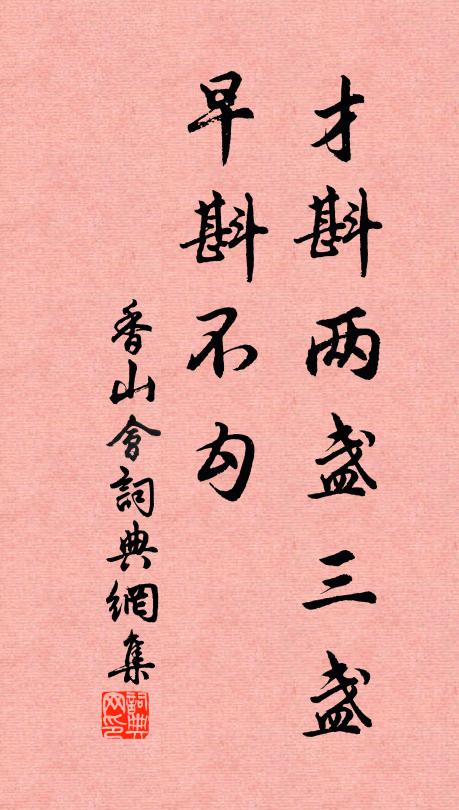 才斟两盏三盏
早斟不勾
香山会詞典網集
詞典网印